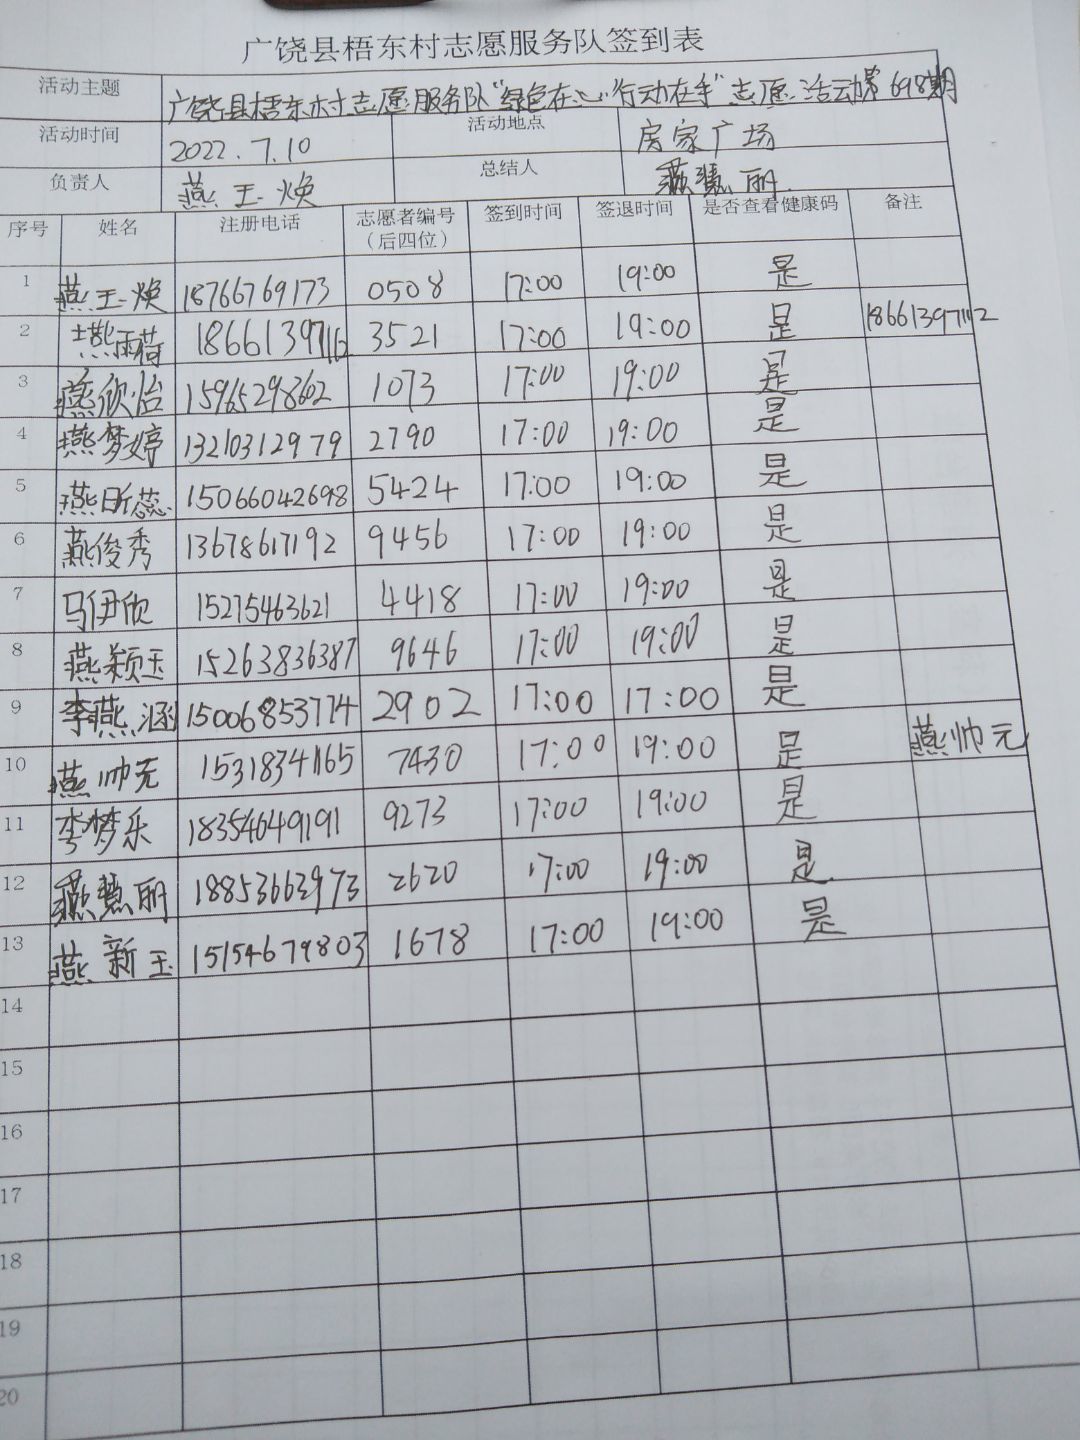 广饶县梧东村志愿服务队签到表
活动主题 广饶县梧东村志愿服务队“绿色在心”行动在手”志愿活动第698期
活动时间 2022.7.10 活动地点 房家广场
负责人 燕玉焕 总结人 燕慧丽
序号 姓名 注册电话 志愿者编号（后四位） 签到时间 签退时间 是否查看健康码 备注
1 燕玉焕 18766769173 0508 17:00 19:00 是
2 燕雨荷 18661397112 3521 17:00 19:00 是 18661397112
3 燕欣怡 15965298362 1073 17:00 19:00 是
4 燕梦婷 13210312979 2790 17:00 19:00 是
5 燕昕蕊 15066042698 5424 17:00 19:00 是
6 燕俊秀 13678617192 9456 17:00 19:00 是
7 马伊欣 15275463621 4418 17:00 19:00 是
8 燕颖玉 15263836387 9646 17:00 19:00 是
9 李燕涵 15006853774 2902 17:00 17:00 是
10 燕帅元 15318341165 7430 17:00 19:00 是 燕帅元
11 李梦乐 18354649191 9273 17:00 19:00 是
12 燕慧丽 18853663973 2620 17:00 19:00 是
13 燕新玉 15154679803 1678 17:00 19:00 是
14
15
16
17
18
19
20